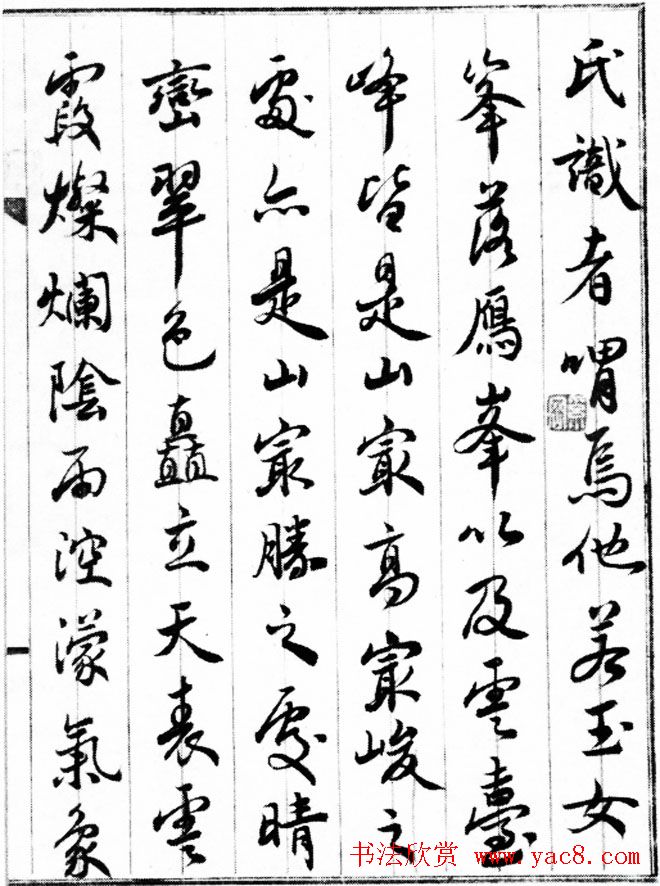 氏識者喟焉他若玉女
峯落鴈峯以及雲臺
峰皆是山㝡高㝡峻之
處亦是山㝡勝之處晴
巒翠色矗立天表雲
霞燦爛陰雨涳濛氣象
书法欣赏 www.yac8.com